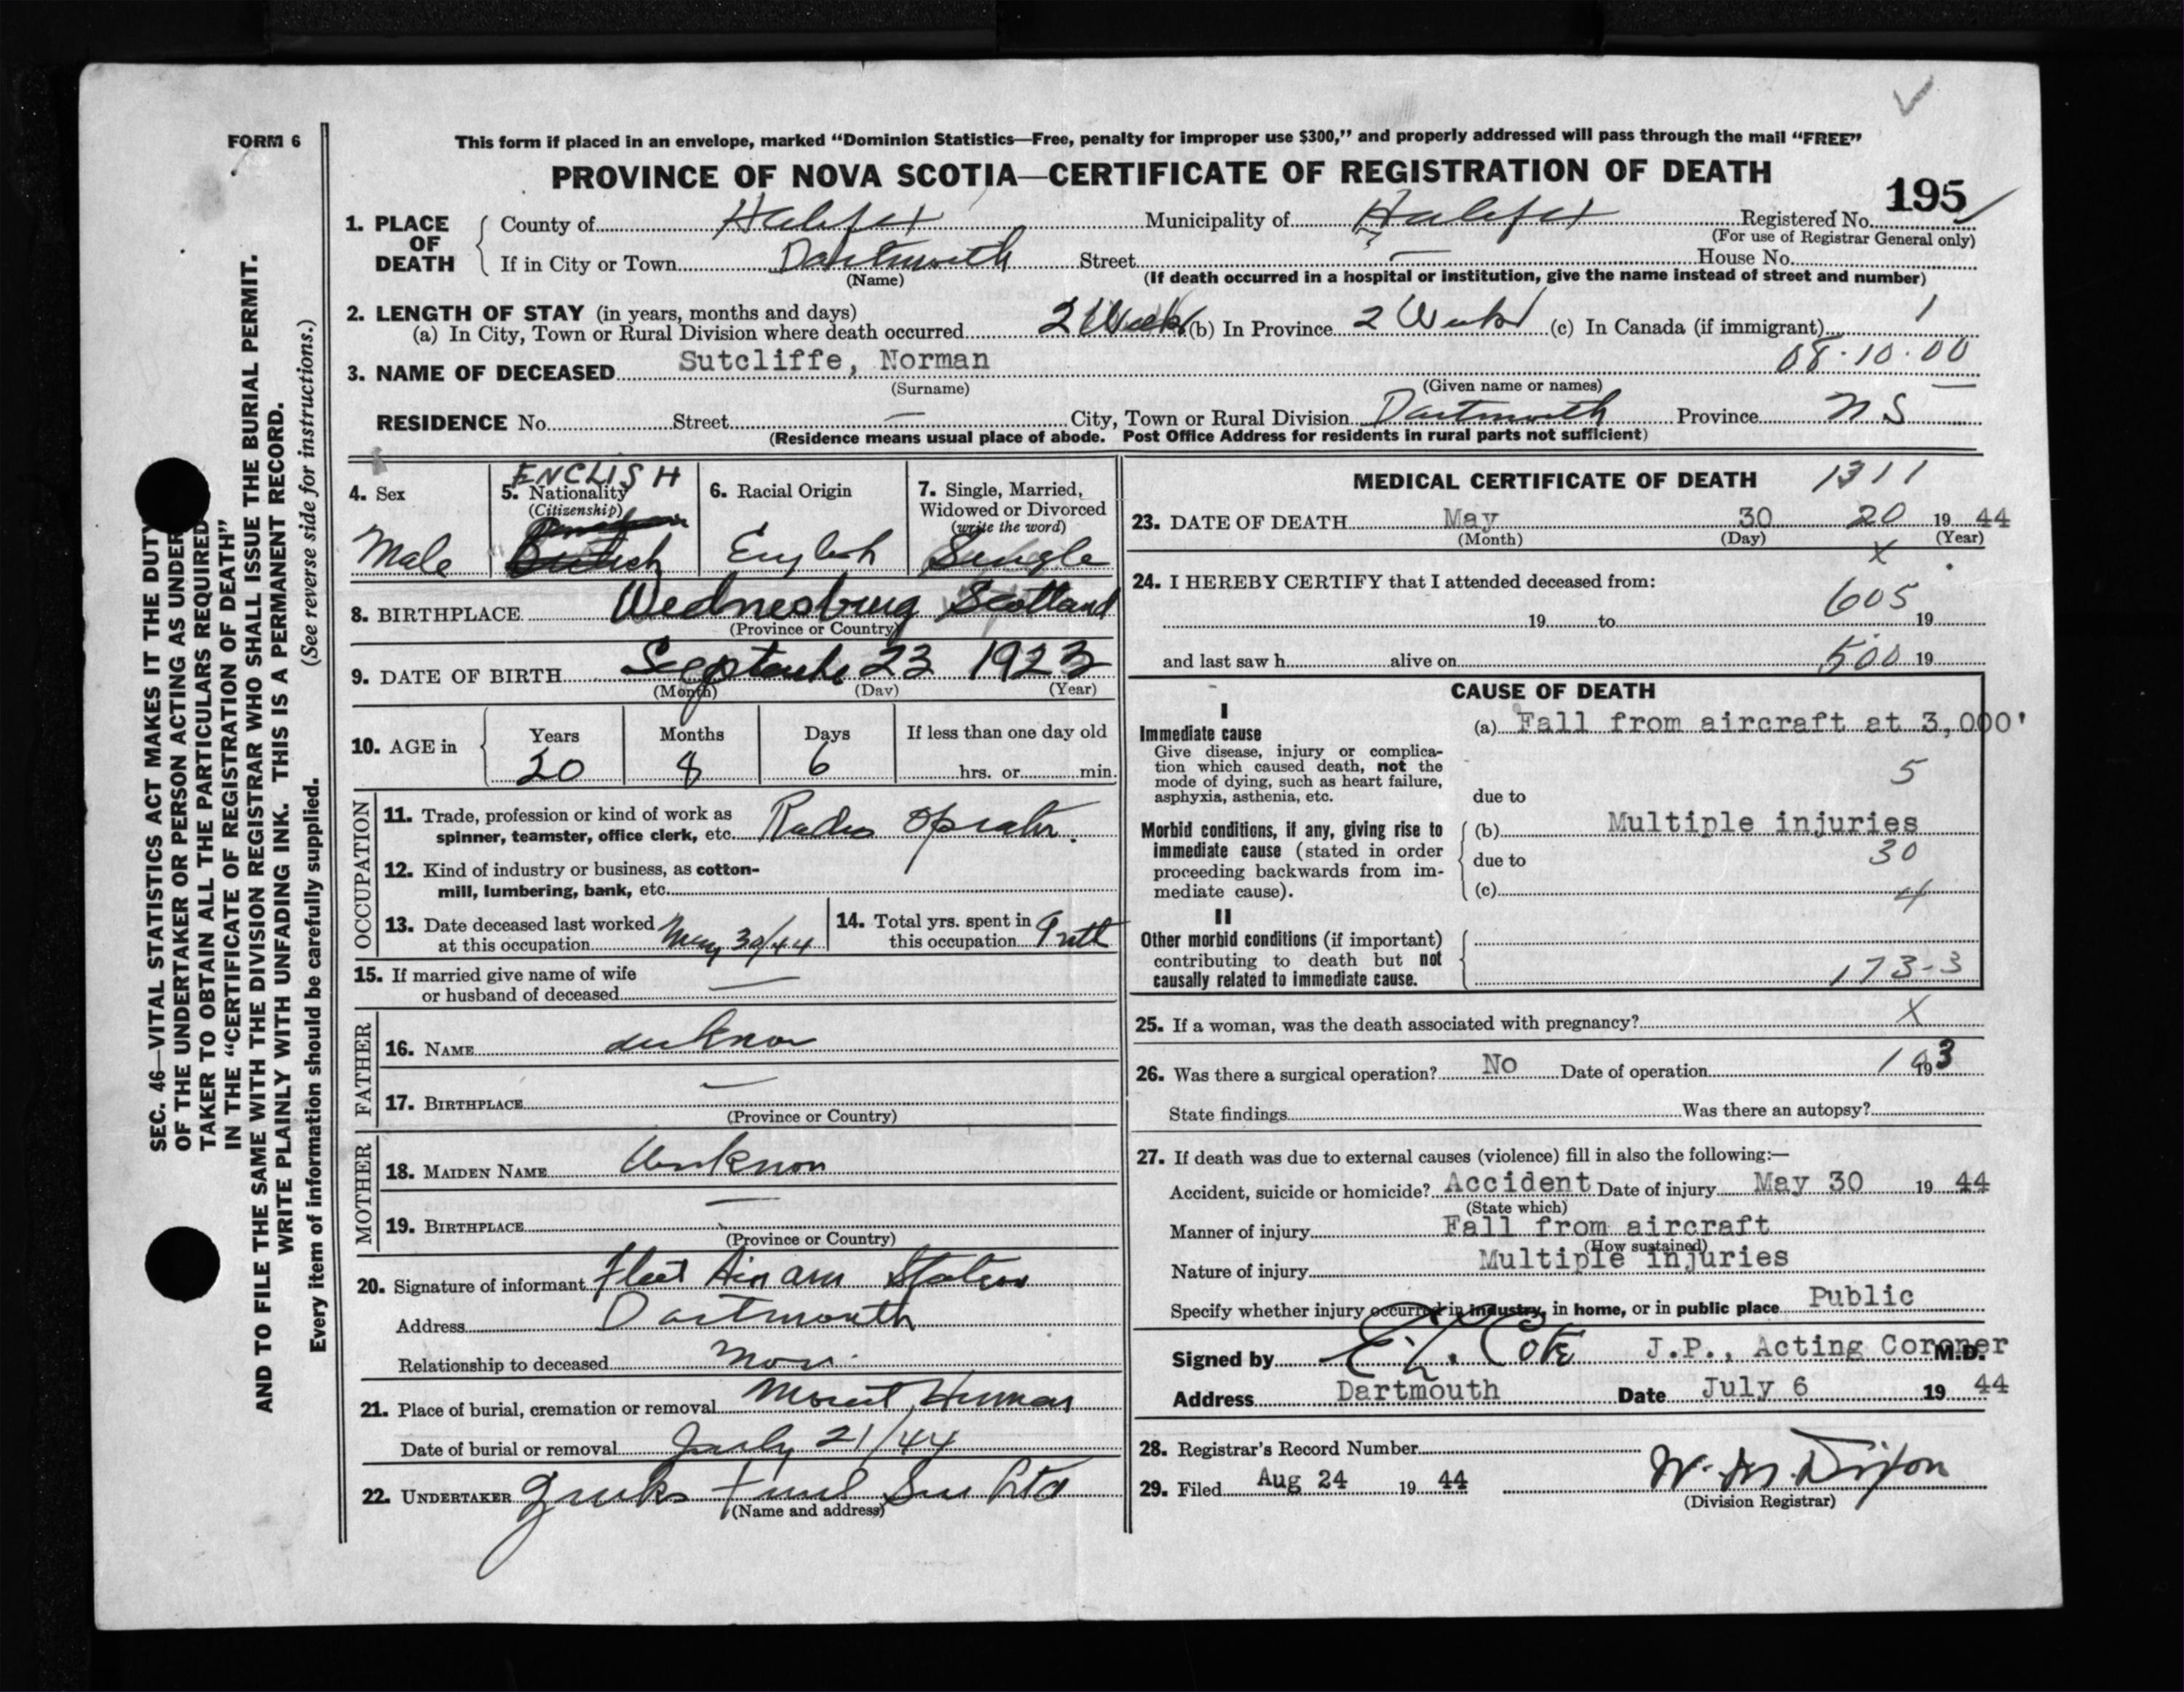 FORM 6
This form if placed in an envelope, marked “Dominion Statistics—Free, penalty for improper use $300,” and properly addressed will pass through the mail “FREE”
PROVINCE OF NOVA SCOTIA—CERTIFICATE OF REGISTRATION OF DEATH
195
1. PLACE OF DEATH County of Halifax Municipality of Halifax Registered No.
(For use of Registrar General only)
If in City or Town Dartmouth Street — House No.
(Name) (If death occurred in a hospital or institution, give the name instead of street and number)
2. LENGTH OF STAY (in years, months and days)
(a) In City, Town or Rural Division where death occurred 2 Weeks (b) In Province 2 Weeks (c) In Canada (if immigrant) 1
08·10·00
3. NAME OF DECEASED Sutcliffe, Norman
(Surname) (Given name or names)
RESIDENCE No. Street — City, Town or Rural Division Dartmouth Province N S
(Residence means usual place of abode. Post Office Address for residents in rural parts not sufficient)
4. Sex
Male
ENGLISH
5. Nationality
(Citizenship)
6. Racial Origin
English
7. Single, Married,
Widowed or Divorced
(write the word)
Single
8. BIRTHPLACE Wednesbrug Scotland
(Province or Country)
9. DATE OF BIRTH September 23 1923
(Month) (Day) (Year)
10. AGE in Years Months Days If less than one day old
20 8 6 hrs. or min.
OCCUPATION
11. Trade, profession or kind of work as
spinner, teamster, office clerk, etc. Radio Operator.
12. Kind of industry or business, as cotton-
mill, lumbering, bank, etc.
13. Date deceased last worked
at this occupation May 30/44
14. Total yrs. spent in
this occupation
15. If married give name of wife
or husband of deceased —
FATHER
16. NAME unknow
17. BIRTHPLACE —
(Province or Country)
MOTHER
18. MAIDEN NAME Unknon
19. BIRTHPLACE —
(Province or Country)
20. Signature of informant Fleet Air arm Station
Address Dartmouth
Relationship to deceased Non
21. Place of burial, cremation or removal Mount Herman
Date of burial or removal July 21/44
22. UNDERTAKER Ltd
(Name and address)
MEDICAL CERTIFICATE OF DEATH 1311
23. DATE OF DEATH May 30 20 19 44
(Month) (Day) (Year)
X
24. I HEREBY CERTIFY that I attended deceased from:
605
19 to 19
and last saw h alive on 500 19
CAUSE OF DEATH
I
Immediate cause
Give disease, injury or complica-
tion which caused death, not the
mode of dying, such as heart failure,
asphyxia, asthenia, etc.
(a) Fall from aircraft at 3,000'
5
due to
Morbid conditions, if any, giving rise to
immediate cause (stated in order
proceeding backwards from im-
mediate cause).
(b) Multiple injuries
due to 30
(c) 4
II
Other morbid conditions (if important)
contributing to death but not
causally related to immediate cause.
173-3
25. If a woman, was the death associated with pregnancy? X
26. Was there a surgical operation? No Date of operation 19 193
State findings Was there an autopsy?
27. If death was due to external causes (violence) fill in also the following:—
Accident, suicide or homicide? Accident Date of injury May 30 19 44
(State which)
Manner of injury Fall from aircraft
(How sustained)
Nature of injury Multiple injuries
Specify whether injury occurred in industry, in home, or in public place Public
Signed by E. L. Cote J.P., Acting Coroner M.D.
Address Dartmouth Date July 6 19 44
28. Registrar's Record Number
29. Filed Aug 24 19 44 W. M. Dixon
(Division Registrar)
SEC. 46—VITAL STATISTICS ACT MAKES IT THE DUTY
OF THE UNDERTAKER OR PERSON ACTING AS UNDER
TAKER TO OBTAIN ALL THE PARTICULARS REQUIRED
IN THE “CERTIFICATE OF REGISTRATION OF DEATH”
AND TO FILE THE SAME WITH THE DIVISION REGISTRAR WHO SHALL ISSUE THE BURIAL PERMIT.
WRITE PLAINLY WITH UNFADING INK. THIS IS A PERMANENT RECORD.
Every item of information should be carefully supplied. (See reverse side for instructions.)